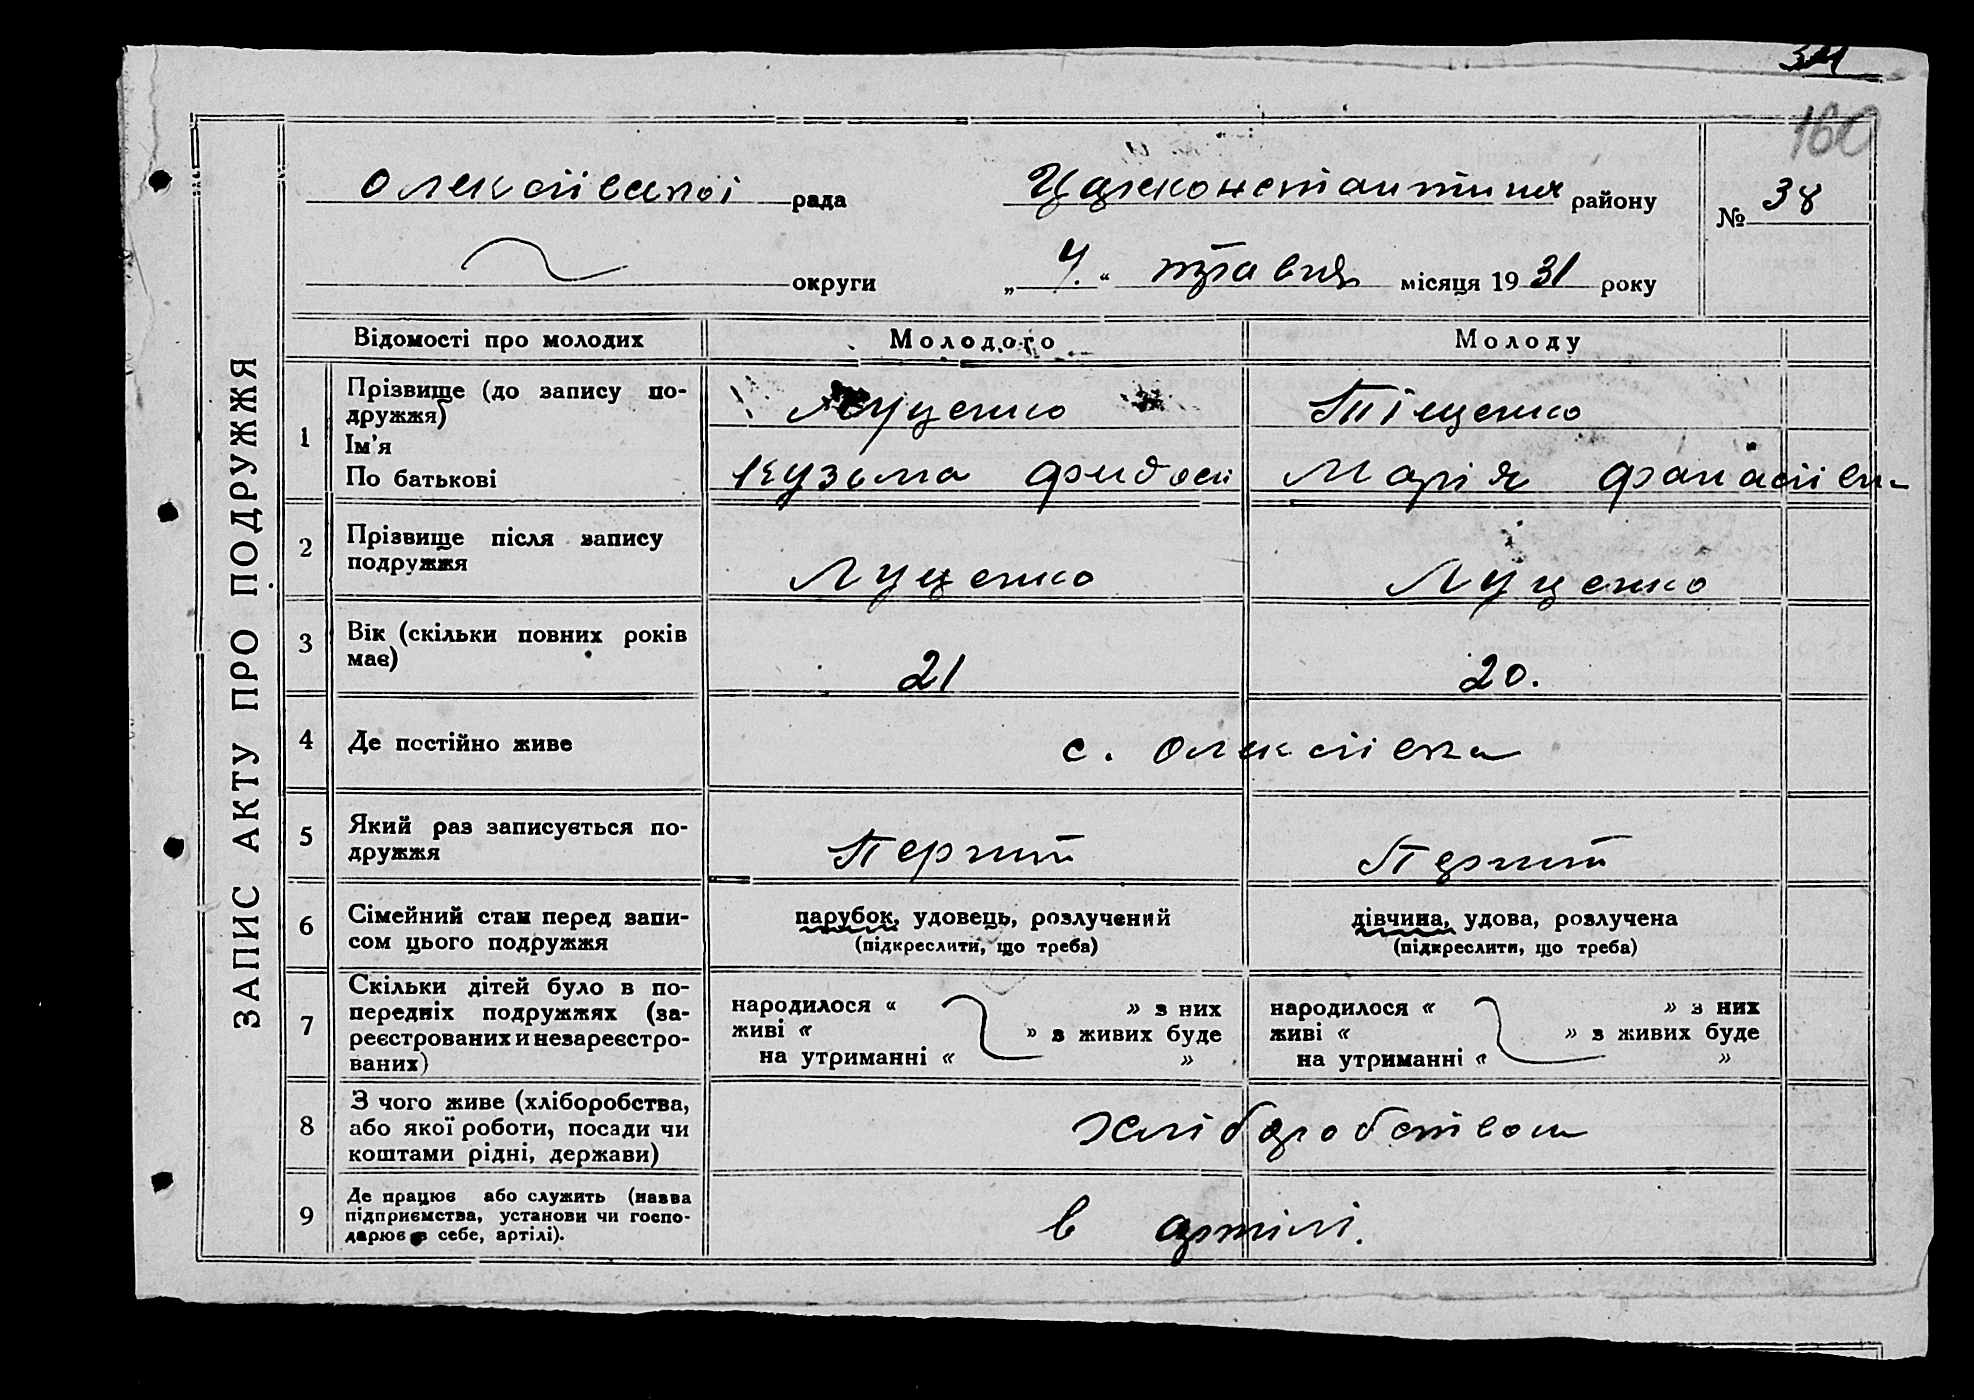 160
ЗАПИС АКТУ ПРО ПОДРУЖЖЯ
рада
району
№ 38
округи
„ “ травня місяця 1931 року
Відомості про молодих Молодого Молоду
1 Прізвище (до запису по-
дружжя)
Луценко Тіщенко
Ім'я
По батькові
Кузьма Федосі Марія
2 Прізвище після запису
подружжя
Луценко Луценко
3 Вік (скільки повних років
має)
21 20.
4 Де постійно живе
с. Олексіївка
5 Який раз записується по-
дружжя
Перший Перший
6 Сімейний стан перед запи-
сом цього подружжя
парубок, удовець, розлучений
(підкреслити, що треба)
дівчина, удова, розлучена
(підкреслити, що треба)
7 Скільки дітей було в по-
передніх подружжях (за-
реєстрованих и незареєстро-
ваних)
народилося « » з них
живі « » в живих буде
на утриманні « »
народилося « » з них
живі « » з живих буде
на утриманні « »
8 З чого живе (хліборобства,
або якої роботи, посади чи
коштами рідні, держави)
Хліборобством
9 Де працює або служить (назва
підприємства, установи чи госпо-
дарює в себе, артілі).
в артілі.